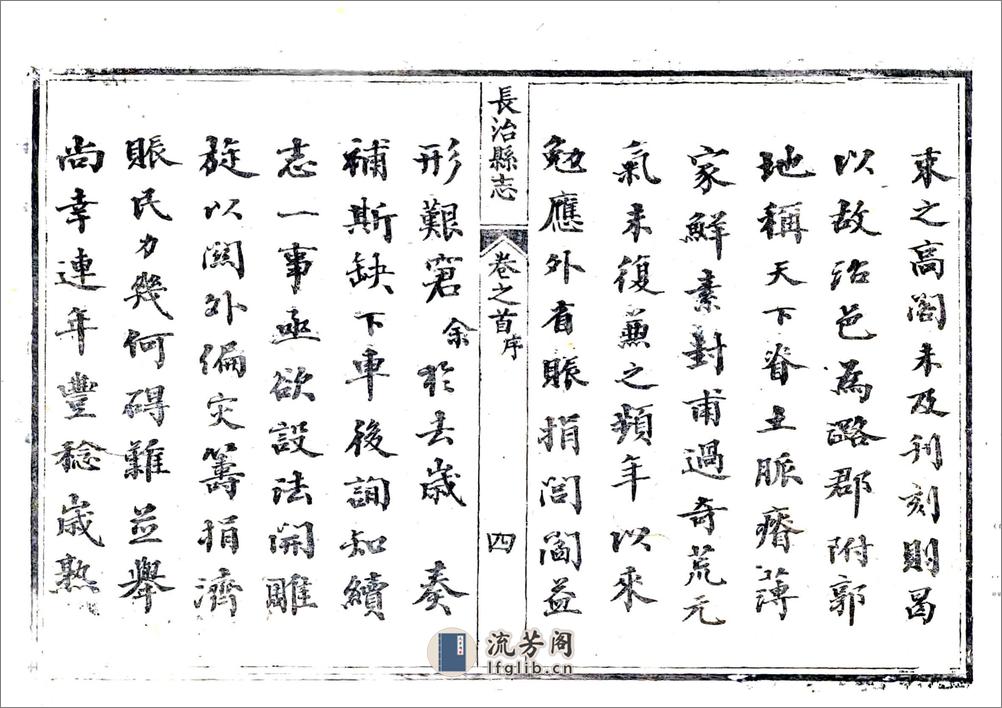 束之高閣未及刊刻則曷
以故治邑爲潞郡附郭
地稱天下脊土脈瘠薄
家鮮素封甫過奇荒元
氣未復兼之頻年以來
勉應外省賑捐閭閻益
長治縣志 卷之首 序 四
形艱窘余於去歲 奏
補斯缺下車後詢知續
志一事亟欲設法開雕
旋以關外偏灾籌捐濟
賑民力幾何碍難並舉
尚幸連年豐稔歲熟
流芳阁
lfglib.cn